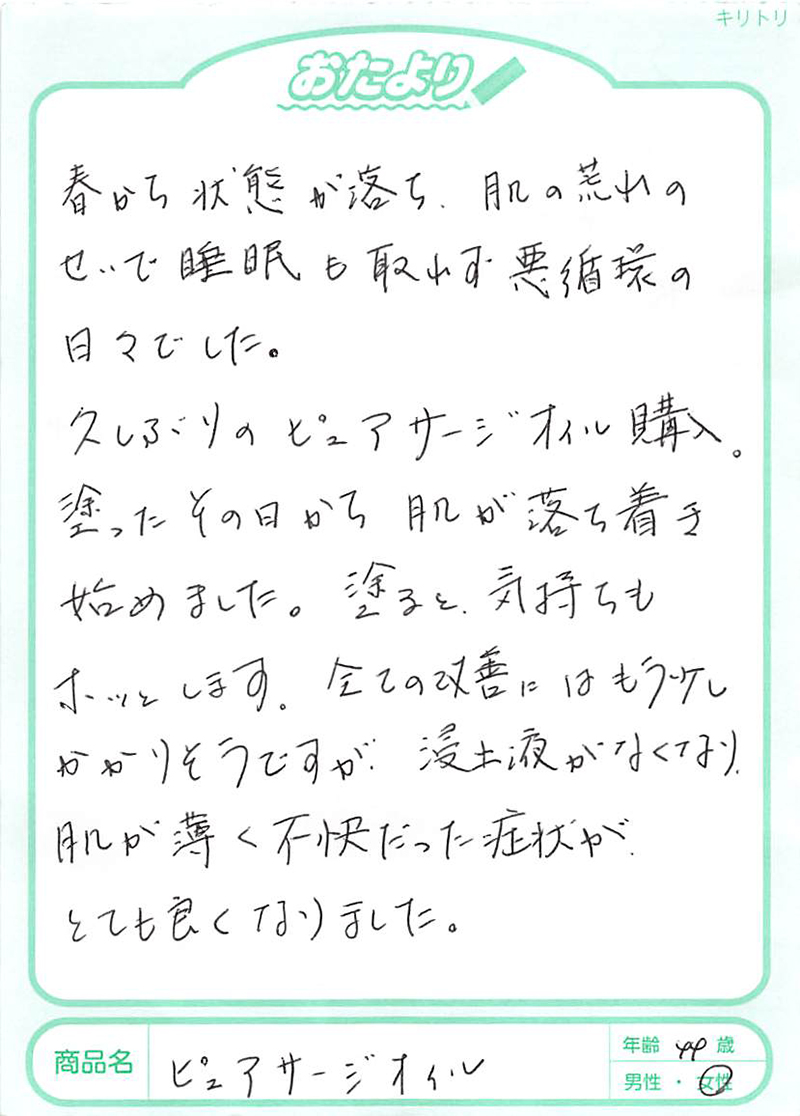 キリトリ
おたより
春から状態が落ち、肌の荒れの
せいで睡眠も取れず悪循環の
日々でした。
久しぶりのピュアサージオイル購入。
塗ったその日から肌が落ち着き
始めました。塗ると、気持ちも
ホッとします。全ての改善にはもう少し
かかりそうですが、浸出液がなくなり、
肌が薄く不快だった症状が、
とても良くなりました。
商品名 ピュアサージオイル
年齢 44 歳
男性・女性